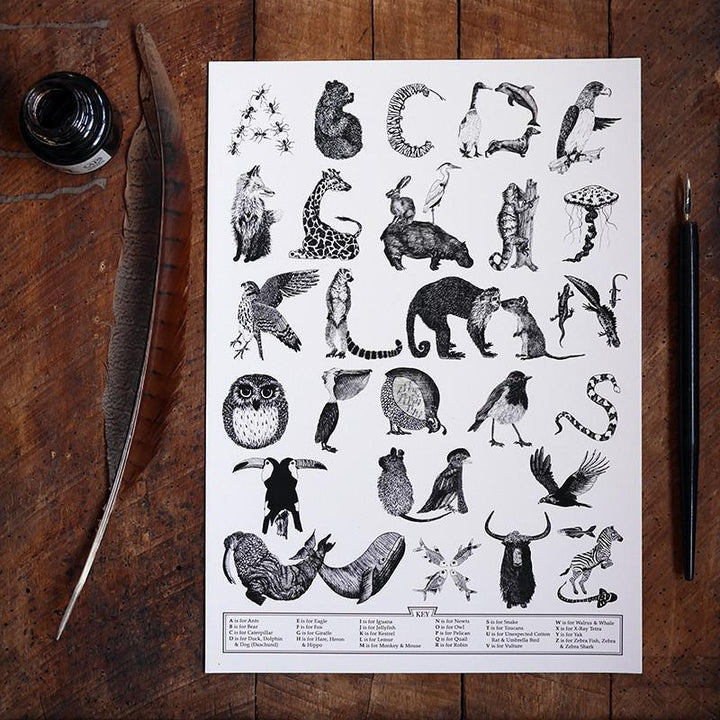 KEY
A is for Ants
B is for Bear
C is for Caterpillar
D is for Duck, Dolphin
& Dog (Daschund)
E is for Eagle
F is for Fox
G is for Giraffe
H is for Hare, Heron
& Hippo
I is for Iguana
J is for Jellyfish
K is for Kestrel
L is for Lemur
M is for Monkey & Mouse
N is for Newts
O is for Owl
P is for Pelican
Q is for Quail
R is for Robin
S is for Snake
T is for Toucans
U is for Unexpected Cotton
Rat & Umbrella Bird
V is for Vulture
W is for Walrus & Whale
X is for X-Ray Tetra
Y is for Yak
Z is for Zebra Fish, Zebra
& Zebra Shark